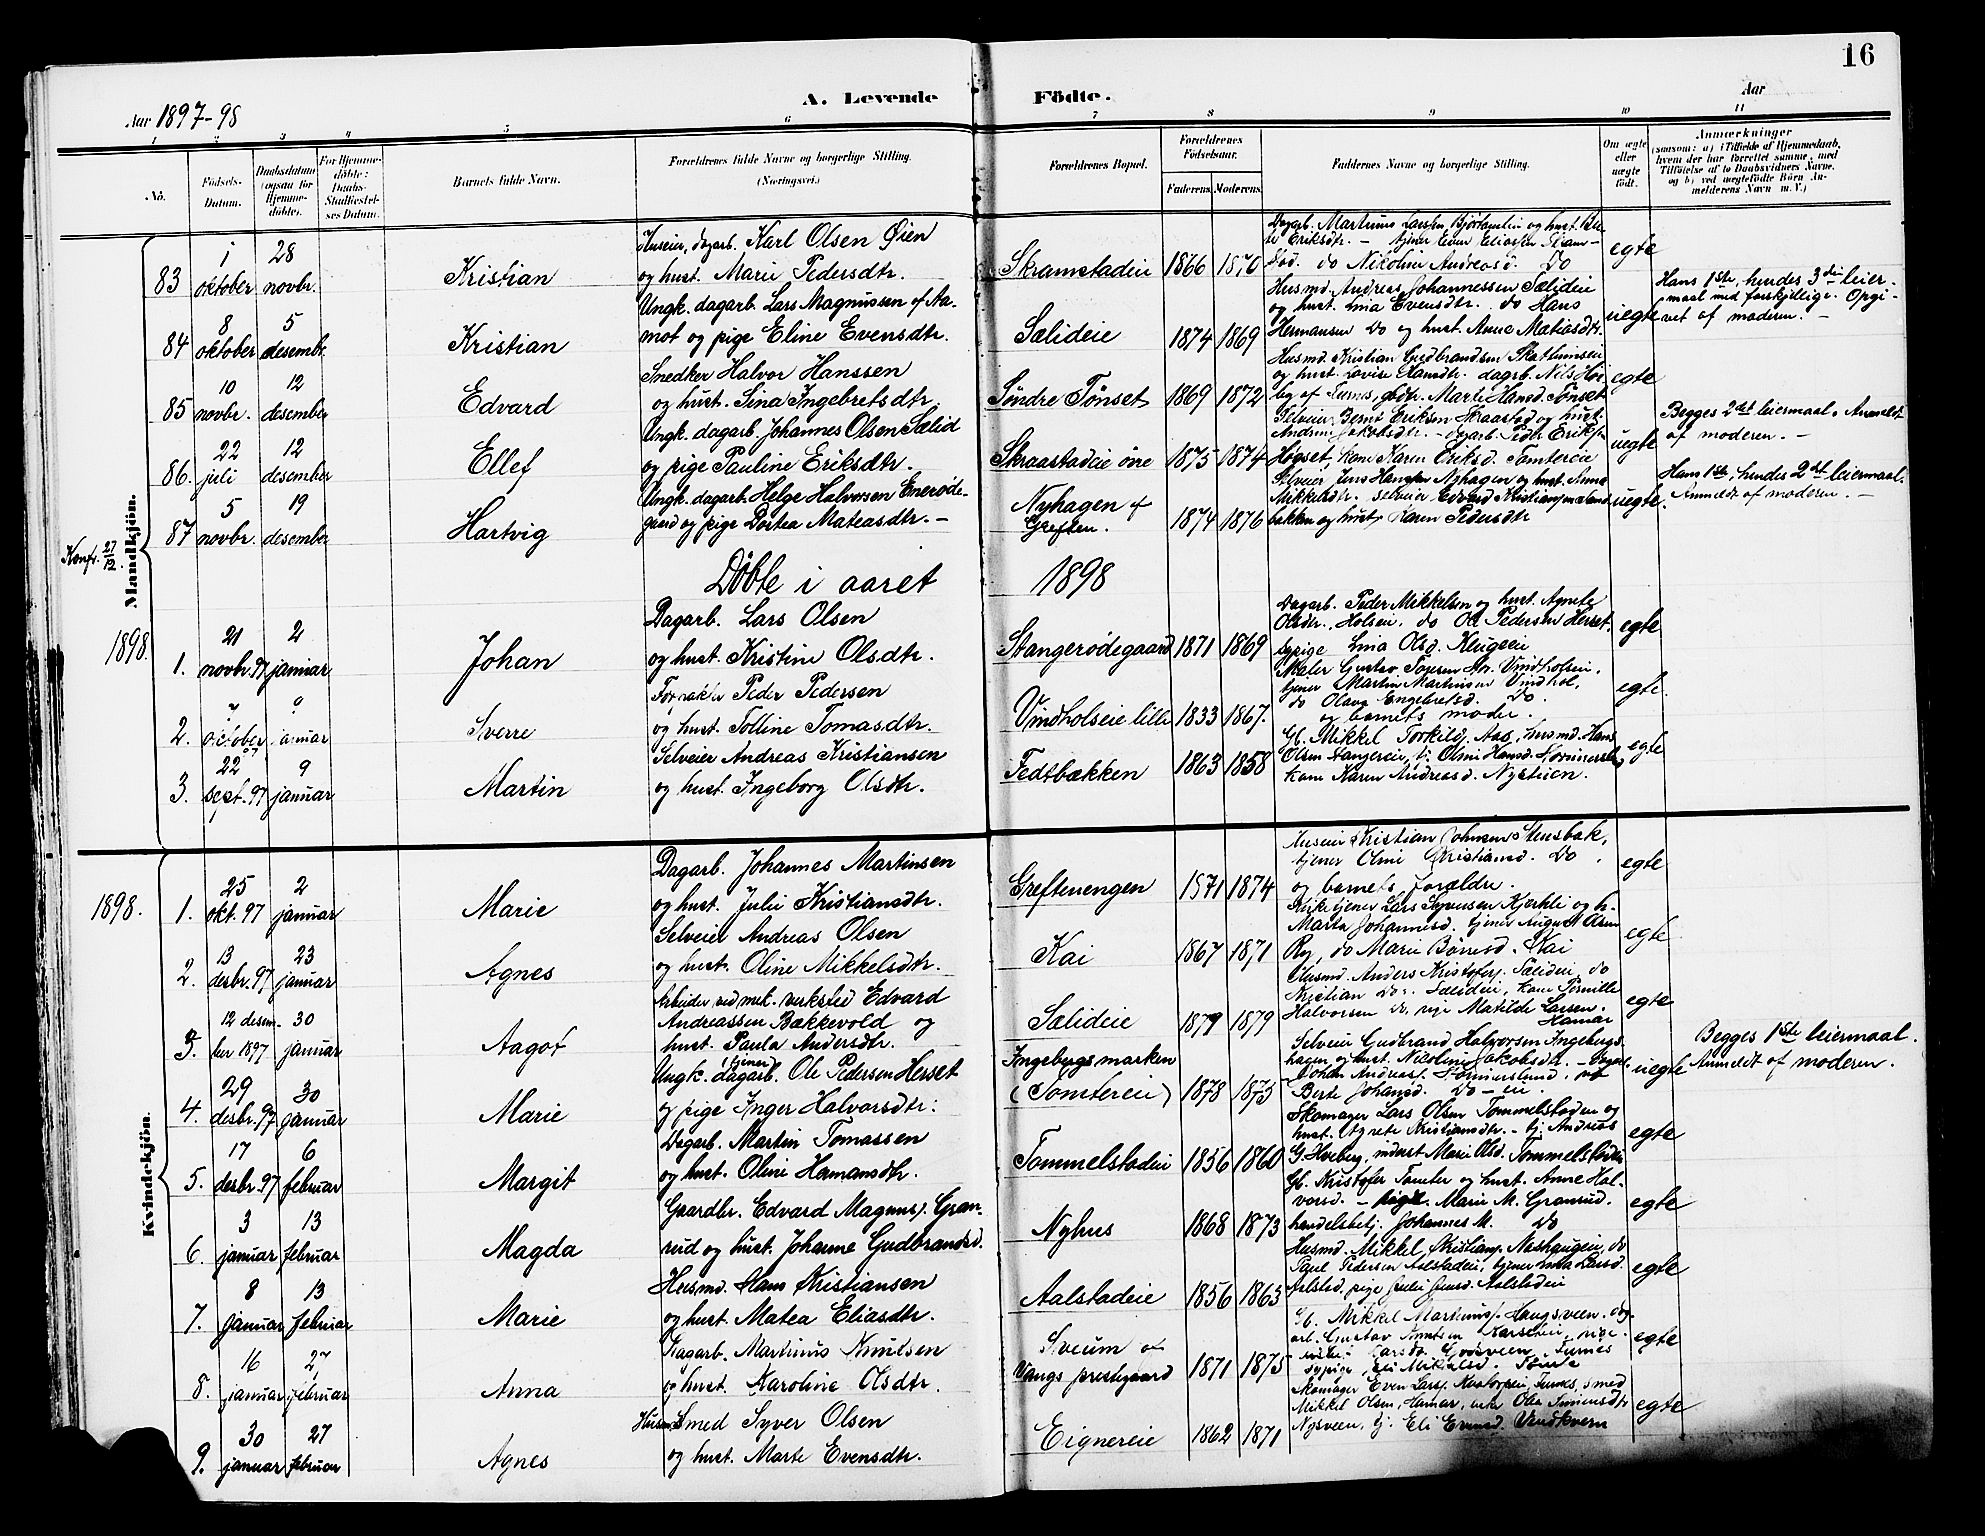 16
Aar 1897-98
A. Levende Födte.
Aar
1 2 3 4 5 6 7 8 9 10 11
No.
Födsels-Datum.
Daabsdatum (ogsaa for Hjemme-döbte).
For Hjemme-döbte: Daabs-Stadfæstel-ses Datum.
Barnets fulde Navn.
Forældrenes fulde Navne og borgerlige Stilling. (Næringsvei.)
Forældrenes Bopæl.
Forældrenes Födselsaar.
Faderens. Moderens.
Faddernes Navne og borgerlige Stilling.
Om ægte eller uægte födt.
Anmærkninger
(saasom: a) i Tilfælde af Hjemmedaab, hvem der har forrettet samme, med Tilföielse af to Daabsvidners Navne, og b) ved uægtefödte Börn An-melderens Navn m. V.)
Mandkjön.
83 1 oktober 28 novbr. Kristian
Huseier, dagarb. Karl Olsen Øien
og hust. Marie Pedersdtr.
Skramstadeie 1866 1870
Dagarb. Martinus Larsen Bjørtomten og hust. Be-
te Eriksdtr. - tjener Even Eliassen Skram-
stad. do Nikoline Andreasd. Do
egte
84 8 oktober 5 desembr. Kristian
Ungk. dagarb. Lars Magnussen af Aa-
mot og pige Eline Evensdtr.
Sælideie 1874 1869
Husmd. Andreas Johannessen Sælideie
og hust. Lina Evensdtr. do Hans
Hermansen Do og hust. Anne Matiasdtr.
uegte
Hans 1ste, hendes 3die leier-
maal med forskjellige. Opgi-
vet af moderen. -
85 10 novbr. 12 desember Edvard
Snedker Halvor Hanssen
og hust. Sina Ingebretsdtr.
Søndre Tønset 1869 1872
Husmd. Kristian Gudbrandsen
og hust. Lovise Hansdtr. dagarb. Nils
af Furnes, Marte Hansd. Tønset
egte
86. 22 juli 12 desember Ellef
Ungk. dagarb. Johannes Olsen Sælid
og pige Pauline Eriksdtr.
Skraastadeie øvre 1875 1874
Selveier Bernt Eriksen Skraastad og hust.
Andrine Jakobsdtr. - dagarb. Peder Eriks.
Høgset, kone Karen Eriksd. Tomtereie
uegte
Begges 2det leiermaal. Anmeldt
af moderen. -
87 5 novbr. 19 desember Hartvig
Ungk. dagarb. Helge Halvorsen Enerøde-
gaard og pige Dortea Mateasdtr. -
Nyhagen af
Greften. 1874 1876
Selveier Jens Hansen Nyhagen og hust. Anne
Mikkelsdtr. selveier Edvard Kristiansen Sand-
bakken og hust. Karen Pedersdtr
uegte.
Hans 1ste, hendes 2det leiermaal.
Anmeldt af moderen. -
Konfr. 27/12.
Døbte i aaret 1898
1898.
1. 21 novbr. 97 2 januar Johan
Dagarb. Lars Olsen
og hust. Kristine Olsdtr.
Stangerødegaard 1871 1869
Dagarb. Peder Mikkelsen og hust. Agnete
Olsdtr. Holseie, do Ole Pedersen Herset.
sypige Lina Olsd. Klugeeie
egte
2. 7 october 9 januar Sverre
Forpakter Peder Pedersen
og hust. Tolline Tomasdtr.
Vindholseie lille 1833 1867.
Maler Gustav Vindholseie.
tjener Martin Martinsen Vindhol,
do Olava Engebretsd. Do.
og barnets moder.
egte.
3. 22 sept. 97 9 januar Martin
Selveier Andreas Kristiansen
og hust. Ingeborg Olsdtr.
Fedtbækken 1863 1858
Gb. Mikkel Torkilds. Aas, husmd. Hans
Olsen Stangereie, tj. Oline Hansd.
kone Karen Andreasd. Nystuen.
egte
Kvindekjön.
1898.
1. 25 okt. 97 2 januar Marie
Dagarb. Johannes Martinsen
og hust. Julie Kristiansdtr.
Greftenengen 1871 1874
Huseier Kristian Johansen Stensbak,
tjener Oline Kristiansd. Do.
og barnets forældre.
egte
2. 13 desbr. 97 23 januar Agnes
Selveier Andreas Olsen
og hust. Oline Mikkelsdtr.
Kai 1867 1871
Kirketjener Lars Syversen Kjerkli og h.
Marta Johannesd. tjener August Olsen
Ry, do Marie Børresd. Kai
egte
3. 12 desem-ber 1897 30 januar Aagot
Arbeider ved mek. verksted Edvard
Andreassen Bækkevold og
hust. Paula Andersdtr.
Sælideie 1879 1879
Husmd. Anders Kristofers. Sælideie, do
Kristian Do. Sælideie, kone Pernille
Halvorsen Do, pige Matilde Larsen
Hamar
egte
4. 29 desbr. 97 30 januar Marie
Ungk. (tjener) dagarb. Ole Pedersen Herset
og pige Inger Halvorsdtr.
Ingebergsmarken
(Tomtereie) 1878 1875
Selveier Gudbrand Halvorsen Ingebergs-
hagen og hust. Nikoline Jakobsdtr. - Dagarb.
Johan Andreas.
Berte Johansd. Do - eie
uegte
Begges 1ste leiermaal.
Anmeldt af moderen.
5. 17 desbr. 97 6 februar Margit
Dagarb. Martin Tomassen
og hust. Oline Hermansdtr.
Tommelstadeie 1856 1860
Skomager Lars Olsen Tommelstadeie og
hust. Agnete Kristiansdtr. - tj. Andreas
G. Hveberg, inderst Marie Olsd. Tommelstadeie
egte
6. 3 januar 13 februar Magda
Gaardbr. Edvard Magnus. Gran-
rud og hust. Johanne Gudbrandsd.
Nyhus 1868 1873
Gb. Kristofer Tomter og hust. Anne Hal-
vorsd. - pige Marie M. Granrud.
handelsbetj. Johannes M. Do
egte
7. 8 januar 13 februar Marie
Husmd. Hans Kristiansen
og hust. Matea Eliasdtr.
Aalstadeie 1856 1863
Husmd. Mikkel Kristians. Nashaugeie, do
Paul Pedersen Aalstadeie, tjener Larsd.
Aalstad. pige Julie Jensd. Aalstadeie
egte
8. 16 januar 27 februar Anna
Dagarb. Martinus Knutsen
og hust. Karoline Olsdtr.
Sveum af
Vangs prestegaard 1871 1875
Gb. Mikkel Martinus. Haugsveen. dag-
arb. Gustav Knutsen
Larsdtr. Furnes
sypige, Eli Mikkelsd.
egte
9. 30 januar 27 februar Agnes
Husmd. Smed Syver Olsen
og hust. Marte Evensdtr.
Eignereie 1862 1871
Skomager Even Lars. Furnes, smed
Mikkel Olsen, Hamar, enke Olea Simensdtr
Nysveen, tj. Eli Evensd. Vendkvern
egte